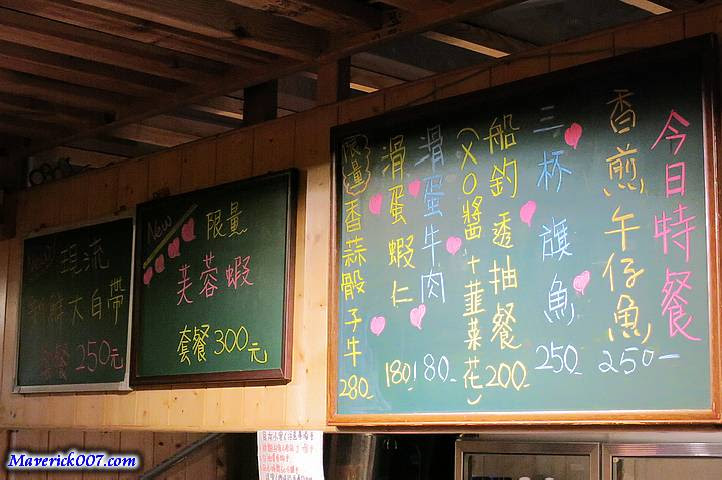 今日特餐
香煎午仔魚
250-
三杯旗魚
250-
船釣透抽餐
(XO醬+韮菜花)
200-
滑蛋牛肉
180-
滑蛋蝦仁
180-
限量
香蒜骰子牛
280-
New
限量
芙蓉蝦
套餐300元
現流
大白帶
套餐250元
Maverick007.com